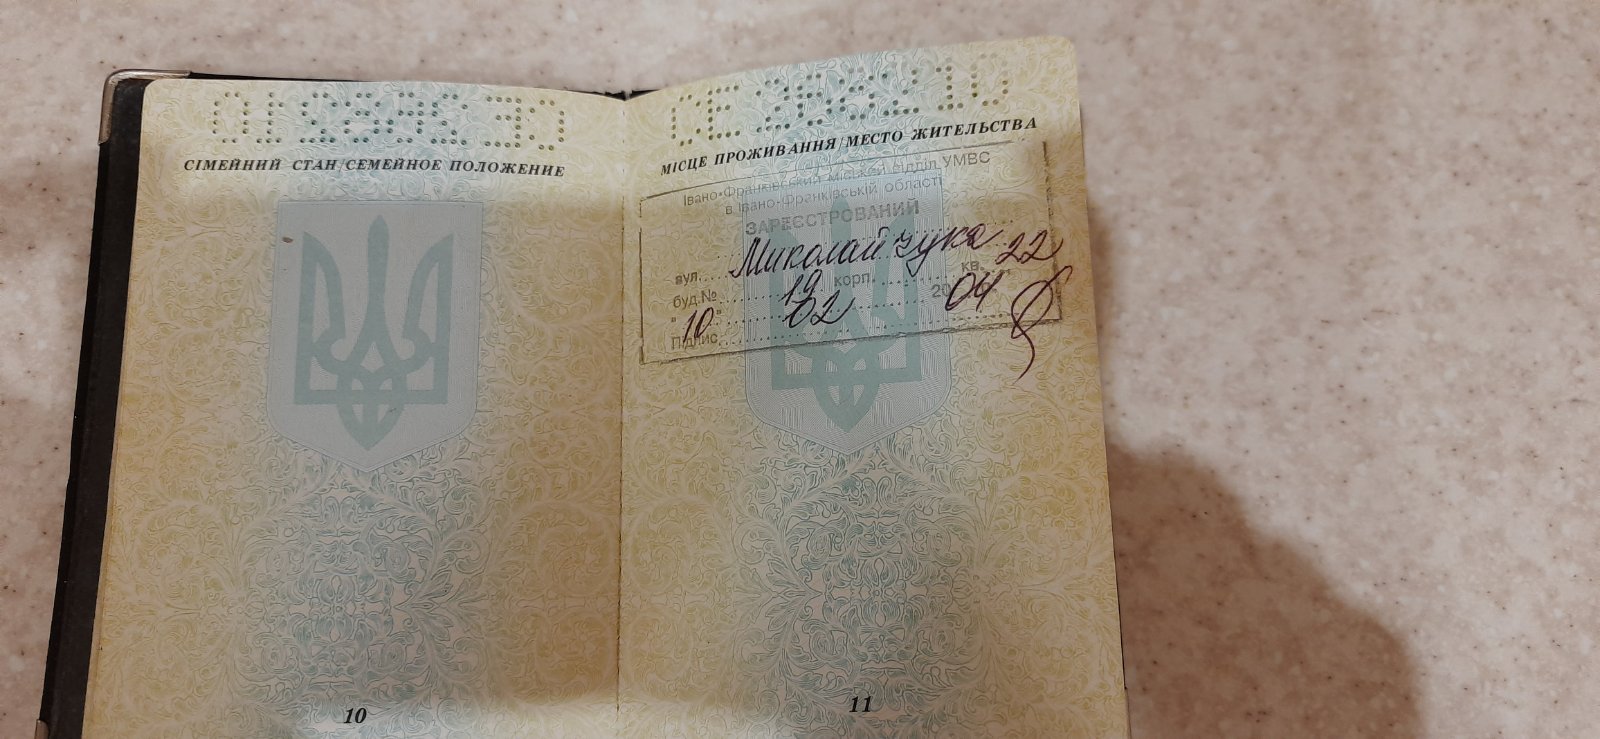 СІМЕЙНИЙ СТАН/СЕМЕЙНОЕ ПОЛОЖЕНИЕ
10
МІСЦЕ ПРОЖИВАННЯ/МЕСТО ЖИТЕЛЬСТВА
Івано-Франківський міський відділ УМВС
в Івано-Франківській області
ЗАРЕЄСТРОВАНИЙ
вул. Миколайчука
буд.№ 19 корп. кв. 22
"10" 02 2004
Підпис
11